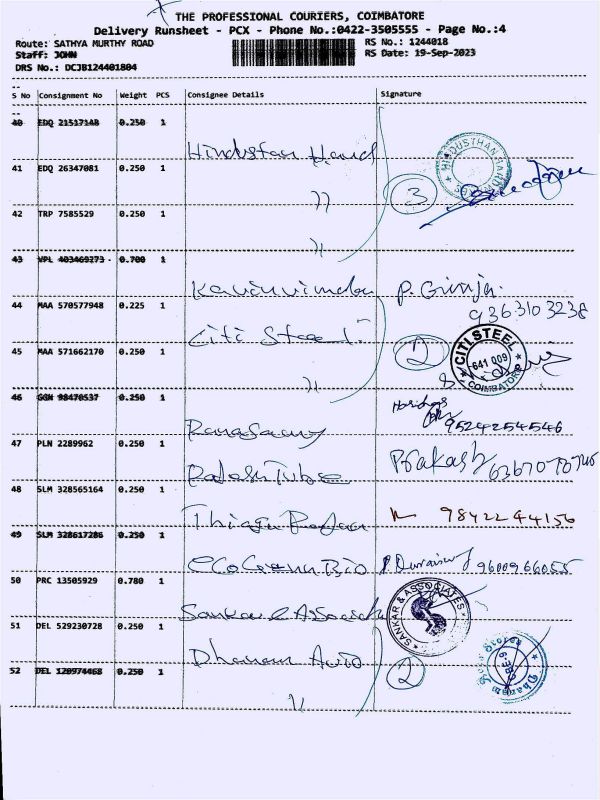 THE PROFESSIONAL COURIERS, COIMBATORE
Delivery Runsheet - PCX - Phone No.:0422-3505555 - Page No.:4
Route: SATHYA MURTHY ROAD
RS No.: 1244018
Staff: JOHN
RS Date: 19-Sep-2023
DRS No.: DCJB124401804
S No Consignment No Weight PCS Consignee Details Signature
40 EDQ 21517148 0.250 1 Hindustan Hard
HINDUSTHAN
41 EDQ 26347081 0.250 1 )) 3
42 TRP 7585529 0.250 1 ))
43 VPL 403469273 0.700 1 P. Girija.
9363103238
44 MAA 570577948 0.225 1 Citi Steel
45 MAA 571662170 0.250 1 )) 2
CITI STEEL
641 009
COIMBATORE
46 GGN 98470537 0.250 1 Ramasamy 9524254546
47 PLN 2289962 0.250 1 Rajesh Tube Prakash
48 SLM 328565164 0.250 1 9842244156
49 SLM 328617286 0.250 1 P Duraisamy 9600966055
50 PRC 13505929 0.780 1 Sankar & Associate
SANKAR & ASSOCIATES
51 DEL 529230728 0.250 1 Dhanam Auto 2
52 DEL 120974468 0.250 1 ))
Dhanam Auto Stores
CBE-9